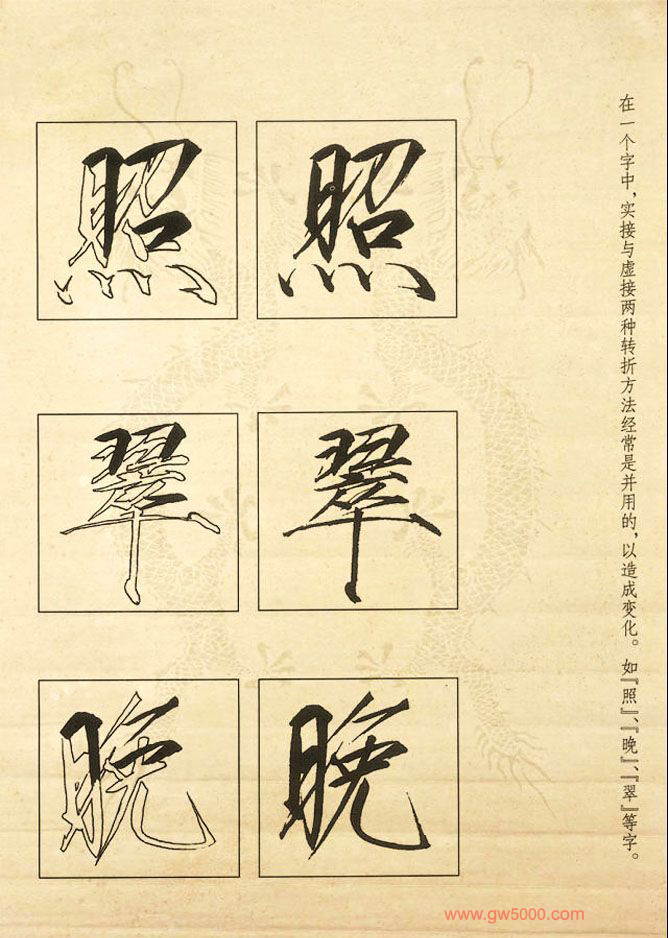 在一个字中，实接与虚接两种转折方法经常是并用的，以造成变化。如『照』、『晚』、『翠』等字。
照 照
翠 翠
晚 晚
www.gw5000.com